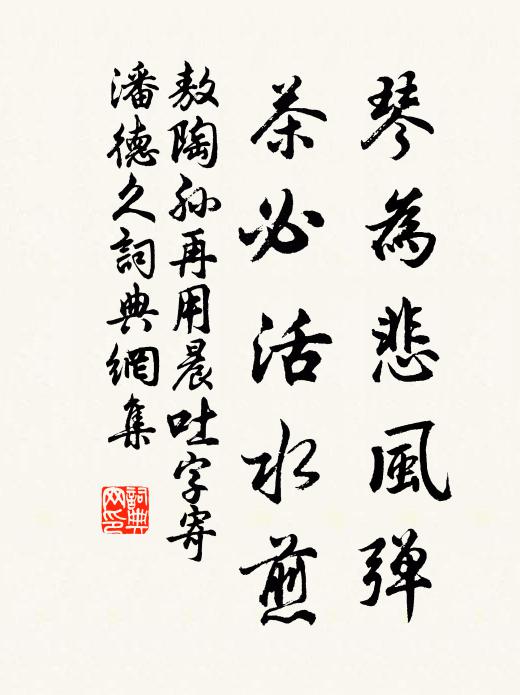 琴為悲風弹
茶必活水煎
敖陶孙再用晨吐字寄
潘德久詞典網集
詞典网印